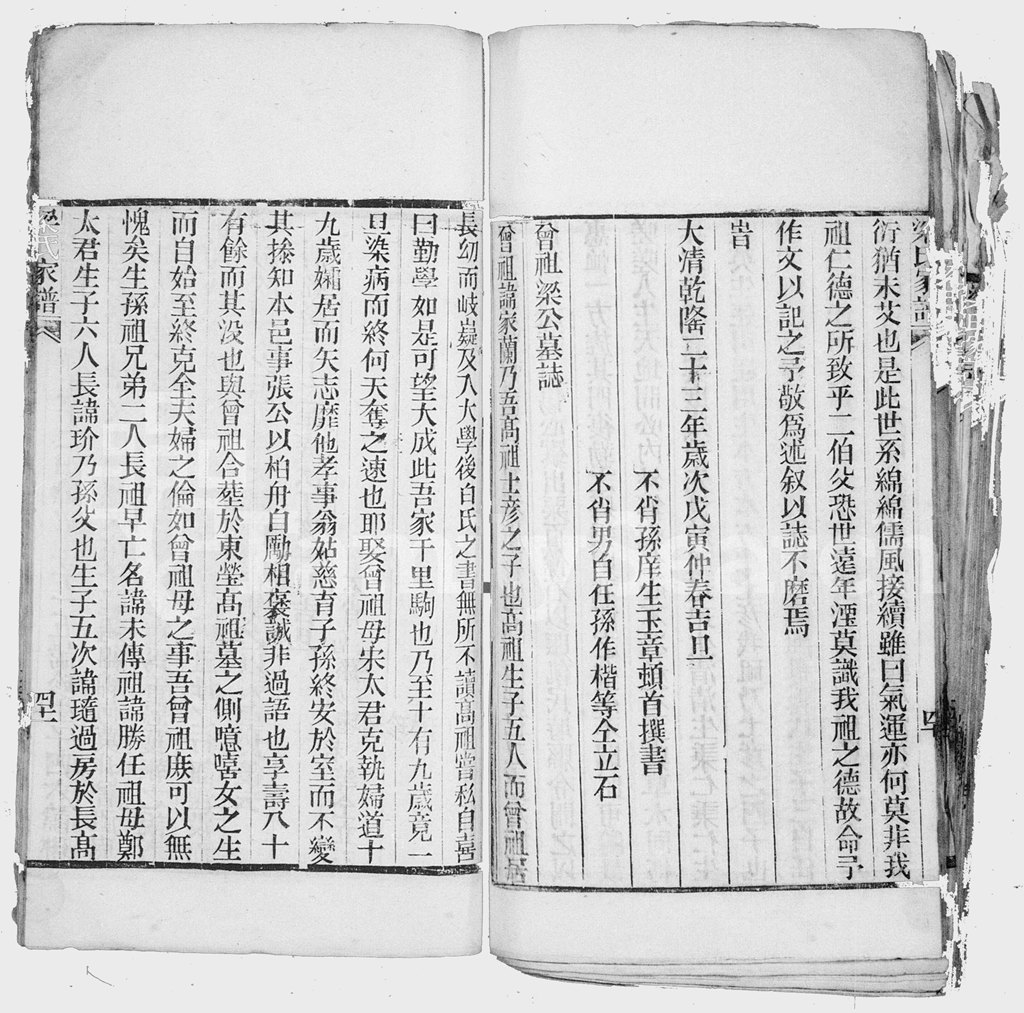 梁氏家譜
衍猶未艾也是此世系綿綿儒風接續雖曰氣運亦何莫非我
祖仁德之所致乎二伯父恐世遠年湮莫識我祖之德故命予
作文以記之予敬爲述叙以誌不磨焉
旹
大清乾隆二十三年歲次戊寅仲春吉旦
不肖孫庠生玉章頓首撰書
不肖男自任孫作楷等仝立石
曾祖梁公墓誌
曾祖諱家蘭乃吾髙祖士彦之子也高祖生子五人而曾祖居
長幼而岐嶷及入大學後白氏之書無所不讀髙祖嘗私自喜
曰勤學如是可望大成此吾家千里駒也乃至十有九歲竟一
旦染病而終何天奪之速也耶娶曾祖母宋太君克執婦道十
九歲孀居而矢志靡他孝事翁姑慈育子孫終安於室而不變
其操知本邑事張公以柏舟自勵相褒誠非過語也享壽八十
有餘而其没也與曾祖合塟於東塋髙祖墓之側噫嘻女之生
而自始至終克全夫婦之倫如曾祖母之事吾曾祖庶可以無
愧矣生孫祖兄弟二人長祖早亡名諱未傳祖諱勝任祖母鄭
太君生子六人長諱玠乃孫父也生子五次諱瓍過房於長髙
家譜
四十一